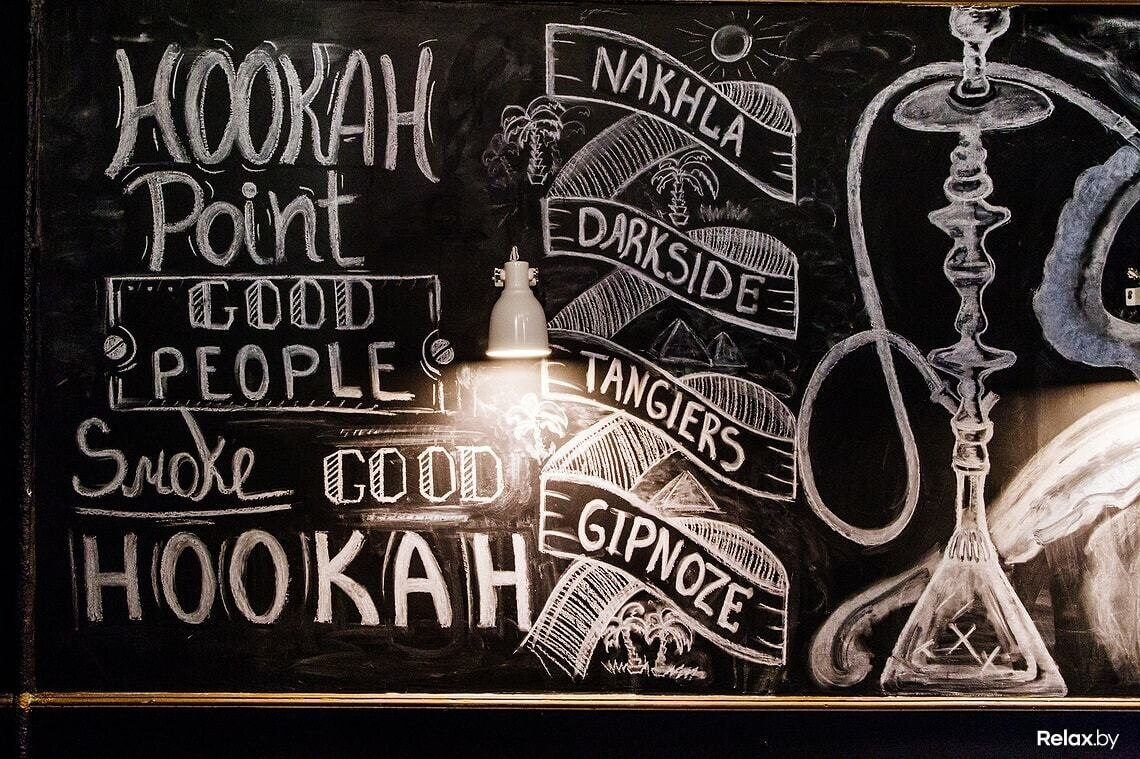 HOOKAH
Point
GOOD
PEOPLE
Smoke GOOD
HOOKAH
NAKHLA
DARKSIDE
TANGIERS
GIPNOZE
Relax.by